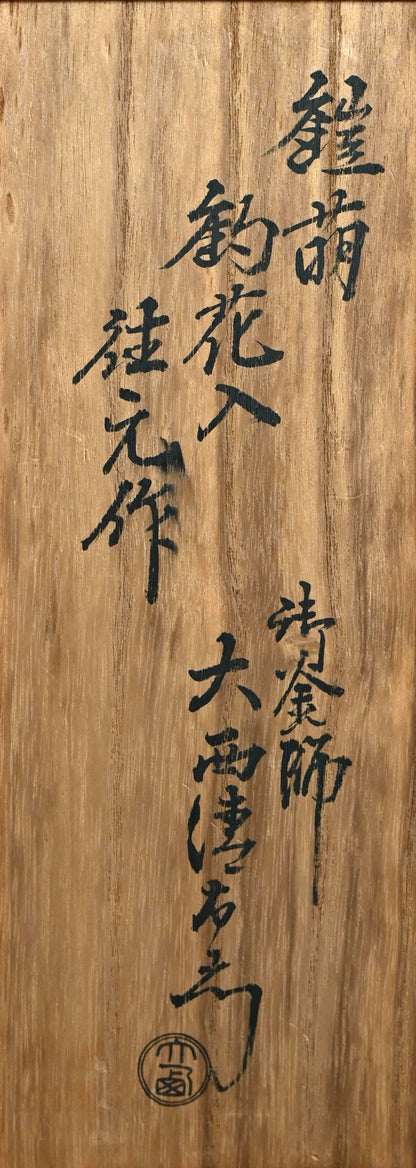 鎧萌
釣花入
元作
御釜師
大西清右衛門
大西